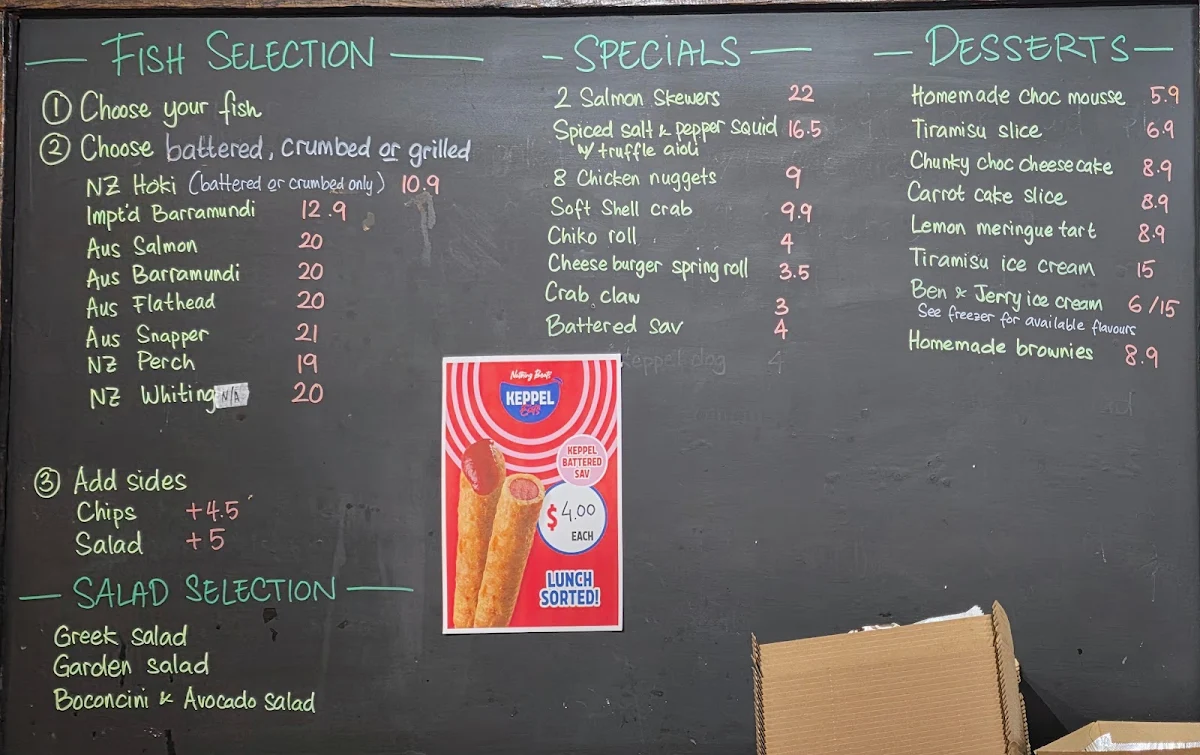 FISH SELECTION
① Choose your fish
② Choose battered, crumbed or grilled
NZ Hoki (battered or crumbed only) 10.9
Impt'd Barramundi 12.9
Aus Salmon 20
Aus Barramundi 20
Aus Flathead 20
Aus Snapper 21
NZ Perch 19
NZ Whiting N/A 20
③ Add sides
Chips +4.5
Salad +5
SALAD SELECTION
Greek salad
Garden salad
Boconcini & Avocado salad
SPECIALS
2 Salmon Skewers 22
Spiced salt & pepper squid 16.5
w/ truffle aioli
8 Chicken nuggets 9
Soft Shell crab 9.9
Chiko roll 4
Cheeseburger spring roll 3.5
Crab claw 3
Battered sav 4
Keppel dog 4
Nothing Beats
KEPPEL
KEPPEL
BATTERED
SAV
$4.00
EACH
LUNCH
SORTED!
DESSERTS
Homemade choc mousse 5.9
Tiramisu slice 6.9
Chunky choc cheesecake 8.9
Carrot cake slice 8.9
Lemon meringue tart 8.9
Tiramisu ice cream 15
Ben & Jerry ice cream 6/15
See freezer for available flavours
Homemade brownies 8.9